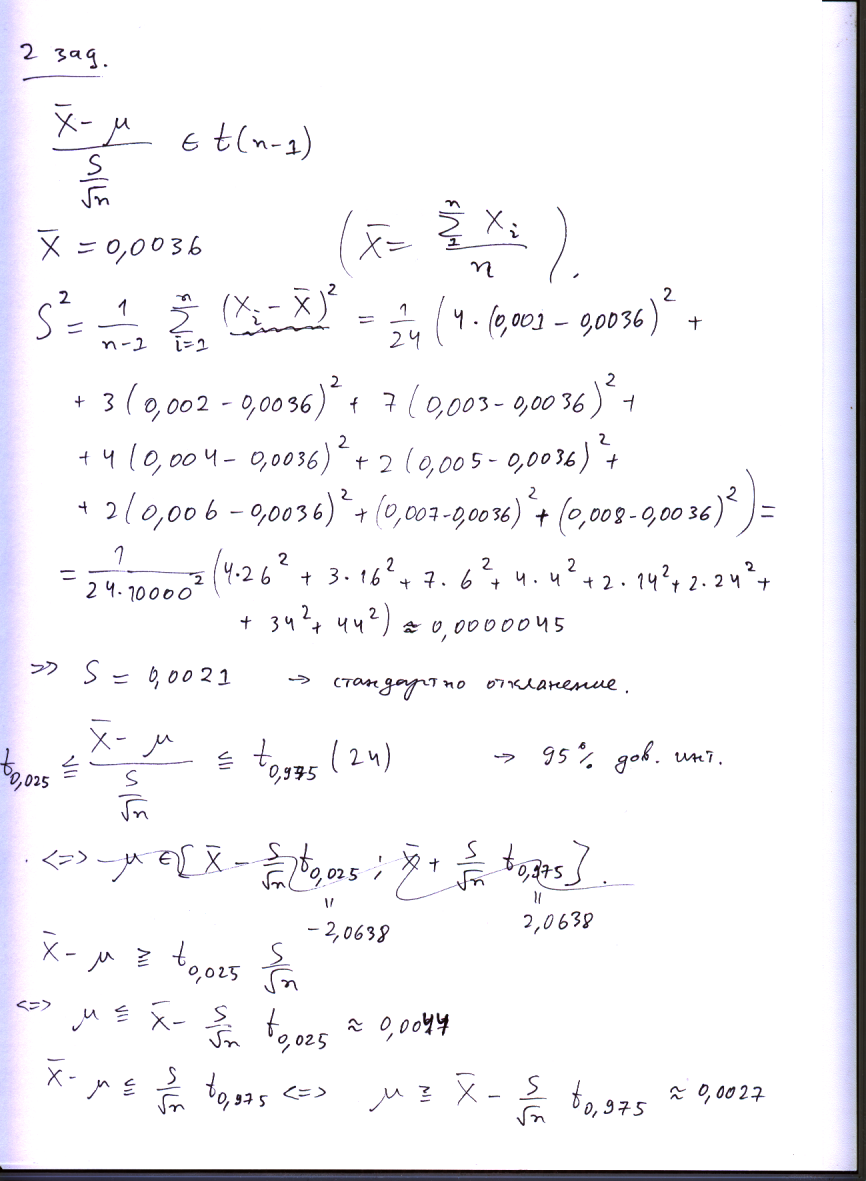 2 зад.
(x̄ - μ) / (S/√n) ∈ t(n-1)
x̄ = 0,0036 ( x̄ = (∑₁ⁿ xᵢ) / n ).
S² = 1/(n-1) ∑ᵢ₌₁ⁿ (xᵢ - x̄)² = 1/24 ( 4·(0,001 - 0,0036)² +
+ 3(0,002 - 0,0036)² + 7(0,003 - 0,0036)² +
+ 4(0,004 - 0,0036)² + 2(0,005 - 0,0036)² +
+ 2(0,006 - 0,0036)² + (0,007-0,0036)² + (0,008-0,0036)² ) =
= 1/(24·10000²) (4·26² + 3·16² + 7·6² + 4·4² + 2·14² + 2·24² +
+ 34² + 44²) ≈ 0,0000045
=> S = 0,0021 → стандартно отклонение.
t₀,₀₂₅ ≤ (x̄ - μ) / (S/√n) ≤ t₀,₉₇₅ (24) → 95% дов. инт.
<=> μ ∈ [ x̄ - S/√n t₀,₀₂₅ ; x̄ + S/√n t₀,₉₇₅ ].
= -2,0638 = 2,0638
x̄ - μ ≥ t₀,₀₂₅ S/√n
<=> μ ≤ x̄ - S/√n t₀,₀₂₅ ≈ 0,0044
x̄ - μ ≤ S/√n t₀,₉₇₅ <=> μ ≥ x̄ - S/√n t₀,₉₇₅ ≈ 0,0027